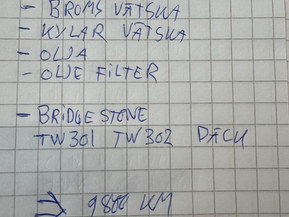 - BROMS VÄTSKA
- KYLAR VÄTSKA
- OLJA
- OLJE FiLTER
- BRiDGESTONE
TW301 TW302 DÄCK
⇒ 9800 KM